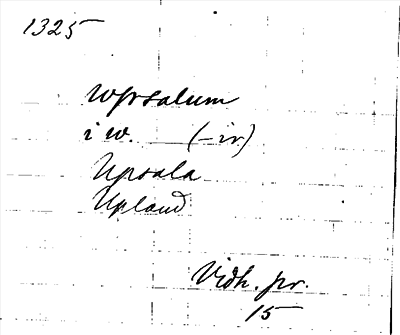 1325
wprsalum
i w. (-ir)
Upsala
Upland
Vidh. pr.
15